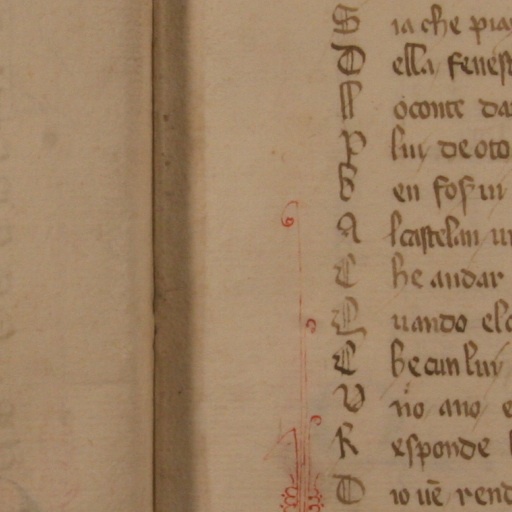 S ia che pia
D ella fenest
M o conte da
P lui de oto
B en fos ui
A l castelan ui
C he andar
Q uando el
C he cun lui
V n̄o ano e
R esponde
D io uē rend